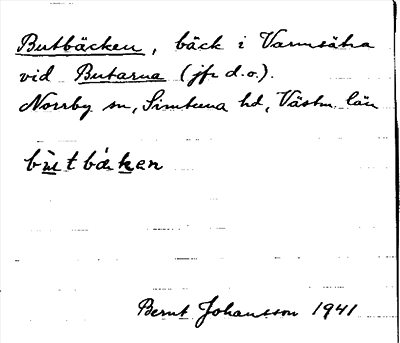 Butbäcken, bäck i Varmsätra
vid Butarna (jfr d.o.).
Norrby sn, Simtuna hd, Västm. län
bù̱tbá̱ḵen
Bernt Johansson 1941